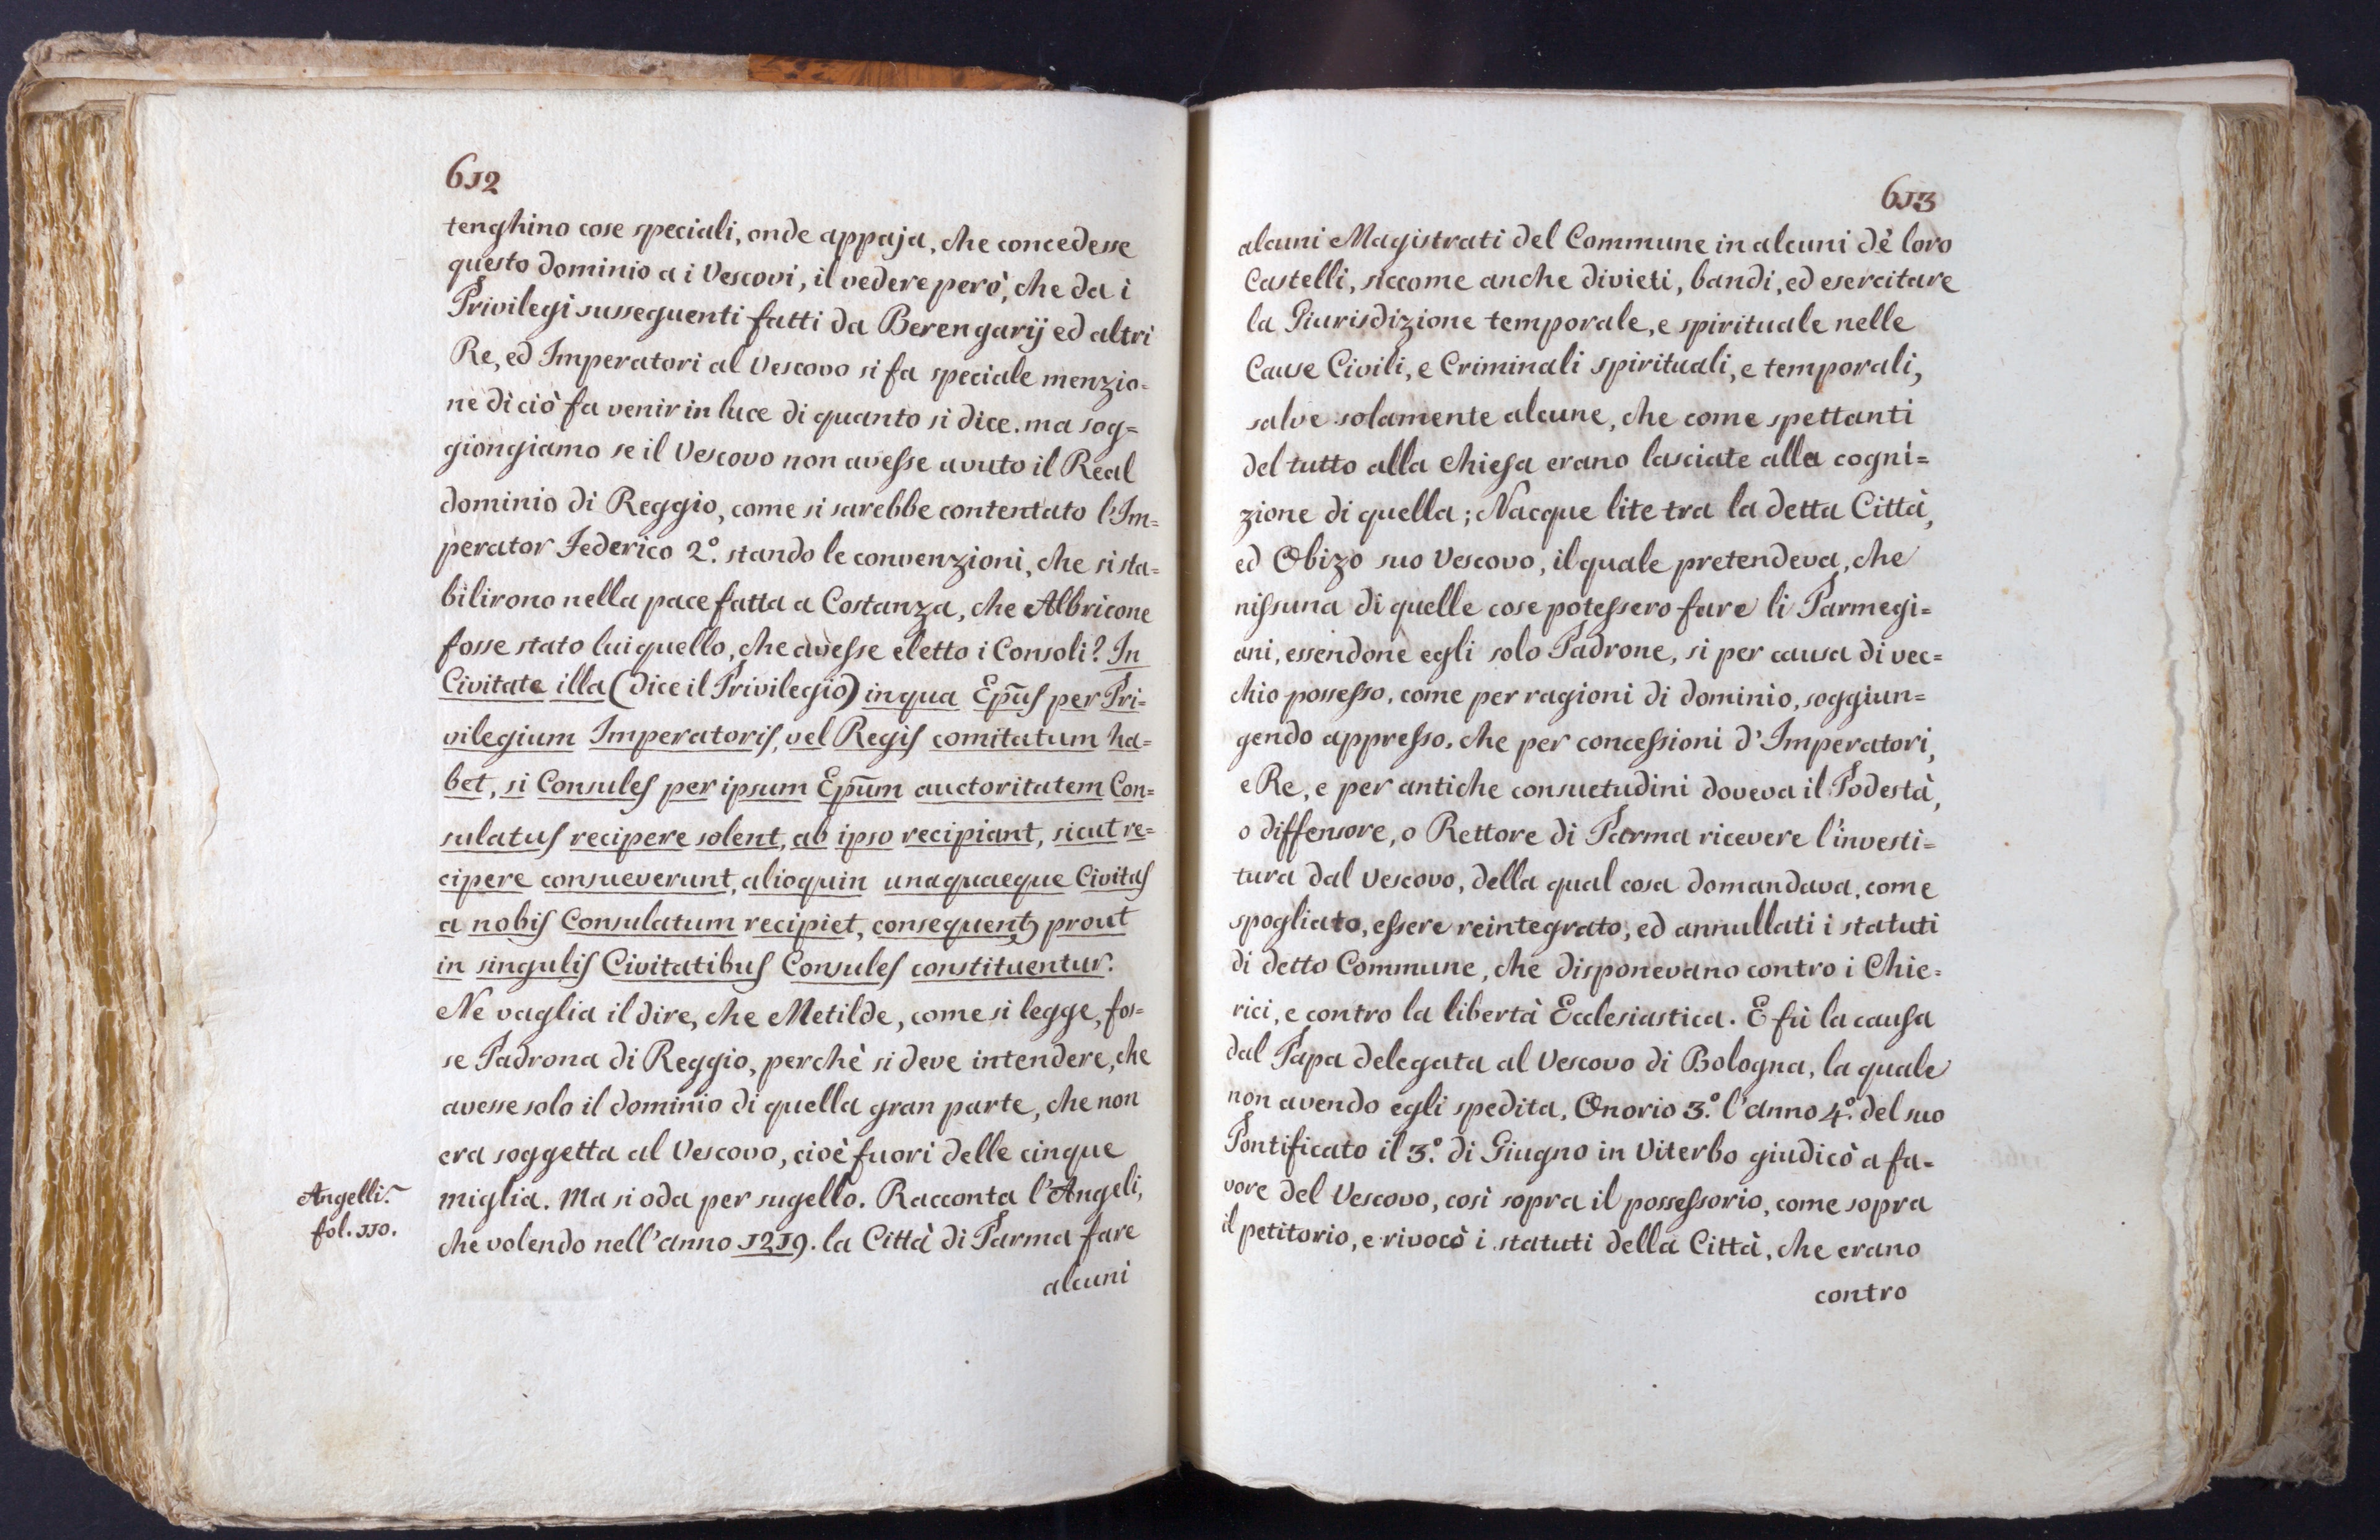 612
tenghino cose speciali, onde appaja, che concedesse
questo dominio a i Vescovi, il vedere però, che da i
Privilegi susseguenti fatti da Berengarij ed altri
Re, ed Imperatori al Vescovo si fa speciale menzio=
ne di ciò fa venir in luce di quanto si dice. ma sog=
giongiamo se il Vescovo non avesse avuto il Real
dominio di Reggio, come si sarebbe contentato l'Im=
perator Federico 2.º stando le convenzioni, che si sta=
bilirono nella pace fatta a Costanza, che Albricone
fosse stato lui quello, che avesse eletto i Consoli? In
Civitate illa (dice il Privilegio) in qua Ep̄us per Pri=
vilegium Imperatoris, vel Regis comitatum ha=
bet, si Consules per ipsum Ep̄um auctoritatem Con=
sulatus recipere solent, ab ipso recipiant, sicut re=
cipere consueverunt, alioquin unaquaeque Civitas
a nobis Consulatum recipiet, consequent prout
in singulis Civitatibus Consules constituentur.
Ne vaglia il dire, che Metilde, come si legge, fos=
se Padrona di Reggio, perchè si deve intendere, che
avesse solo il dominio di quella gran parte, che non
era soggetta al Vescovo, cioè fuori delle cinque
miglia. Ma si oda per sugello. Racconta l'Angeli,
che volendo nell'anno 1219. la Città di Parma fare
alcuni
Angelli.
fol. 110.
613
alcuni Magistrati del Commune in alcuni dè loro
Castelli, siccome anche divieti, bandi, ed esercitare
la Giurisdizione temporale, e spirituale nelle
Cause Civili, e Criminali spirituali, e temporali,
salve solamente alcune, che come spettanti
del tutto alla chiesa erano lasciate alla cogni=
zione di quella; Nacque lite tra la detta Città,
ed Obizo suo Vescovo, il quale pretendeva, che
nissuna di quelle cose potessero fare li Parmegi=
ani, essendone egli solo Padrone, si per causa di vec=
chio possesso, come per ragioni di dominio, soggiun=
gendo appresso, che per concessioni d'Imperatori,
e Re, e per antiche consuetudini doveva il Podestà,
o diffensore, o Rettore di Parma ricevere l'investi=
tura dal Vescovo, della qual cosa domandava, come
spogliato, essere reintegrato, ed annullati i statuti
di detto Commune, che disponevano contro i Chie=
rici, e contro la libertà Ecclesiastica. E fù la causa
dal Papa delegata al Vescovo di Bologna, la quale
non avendo egli spedita, Onorio 3.º l'anno 4.º del suo
Pontificato il 3.º di Giugno in Viterbo giudicò a fa=
vore del Vescovo, così sopra il possessorio, come sopra
il petitorio, e rivocò i statuti della Città, che erano
contro